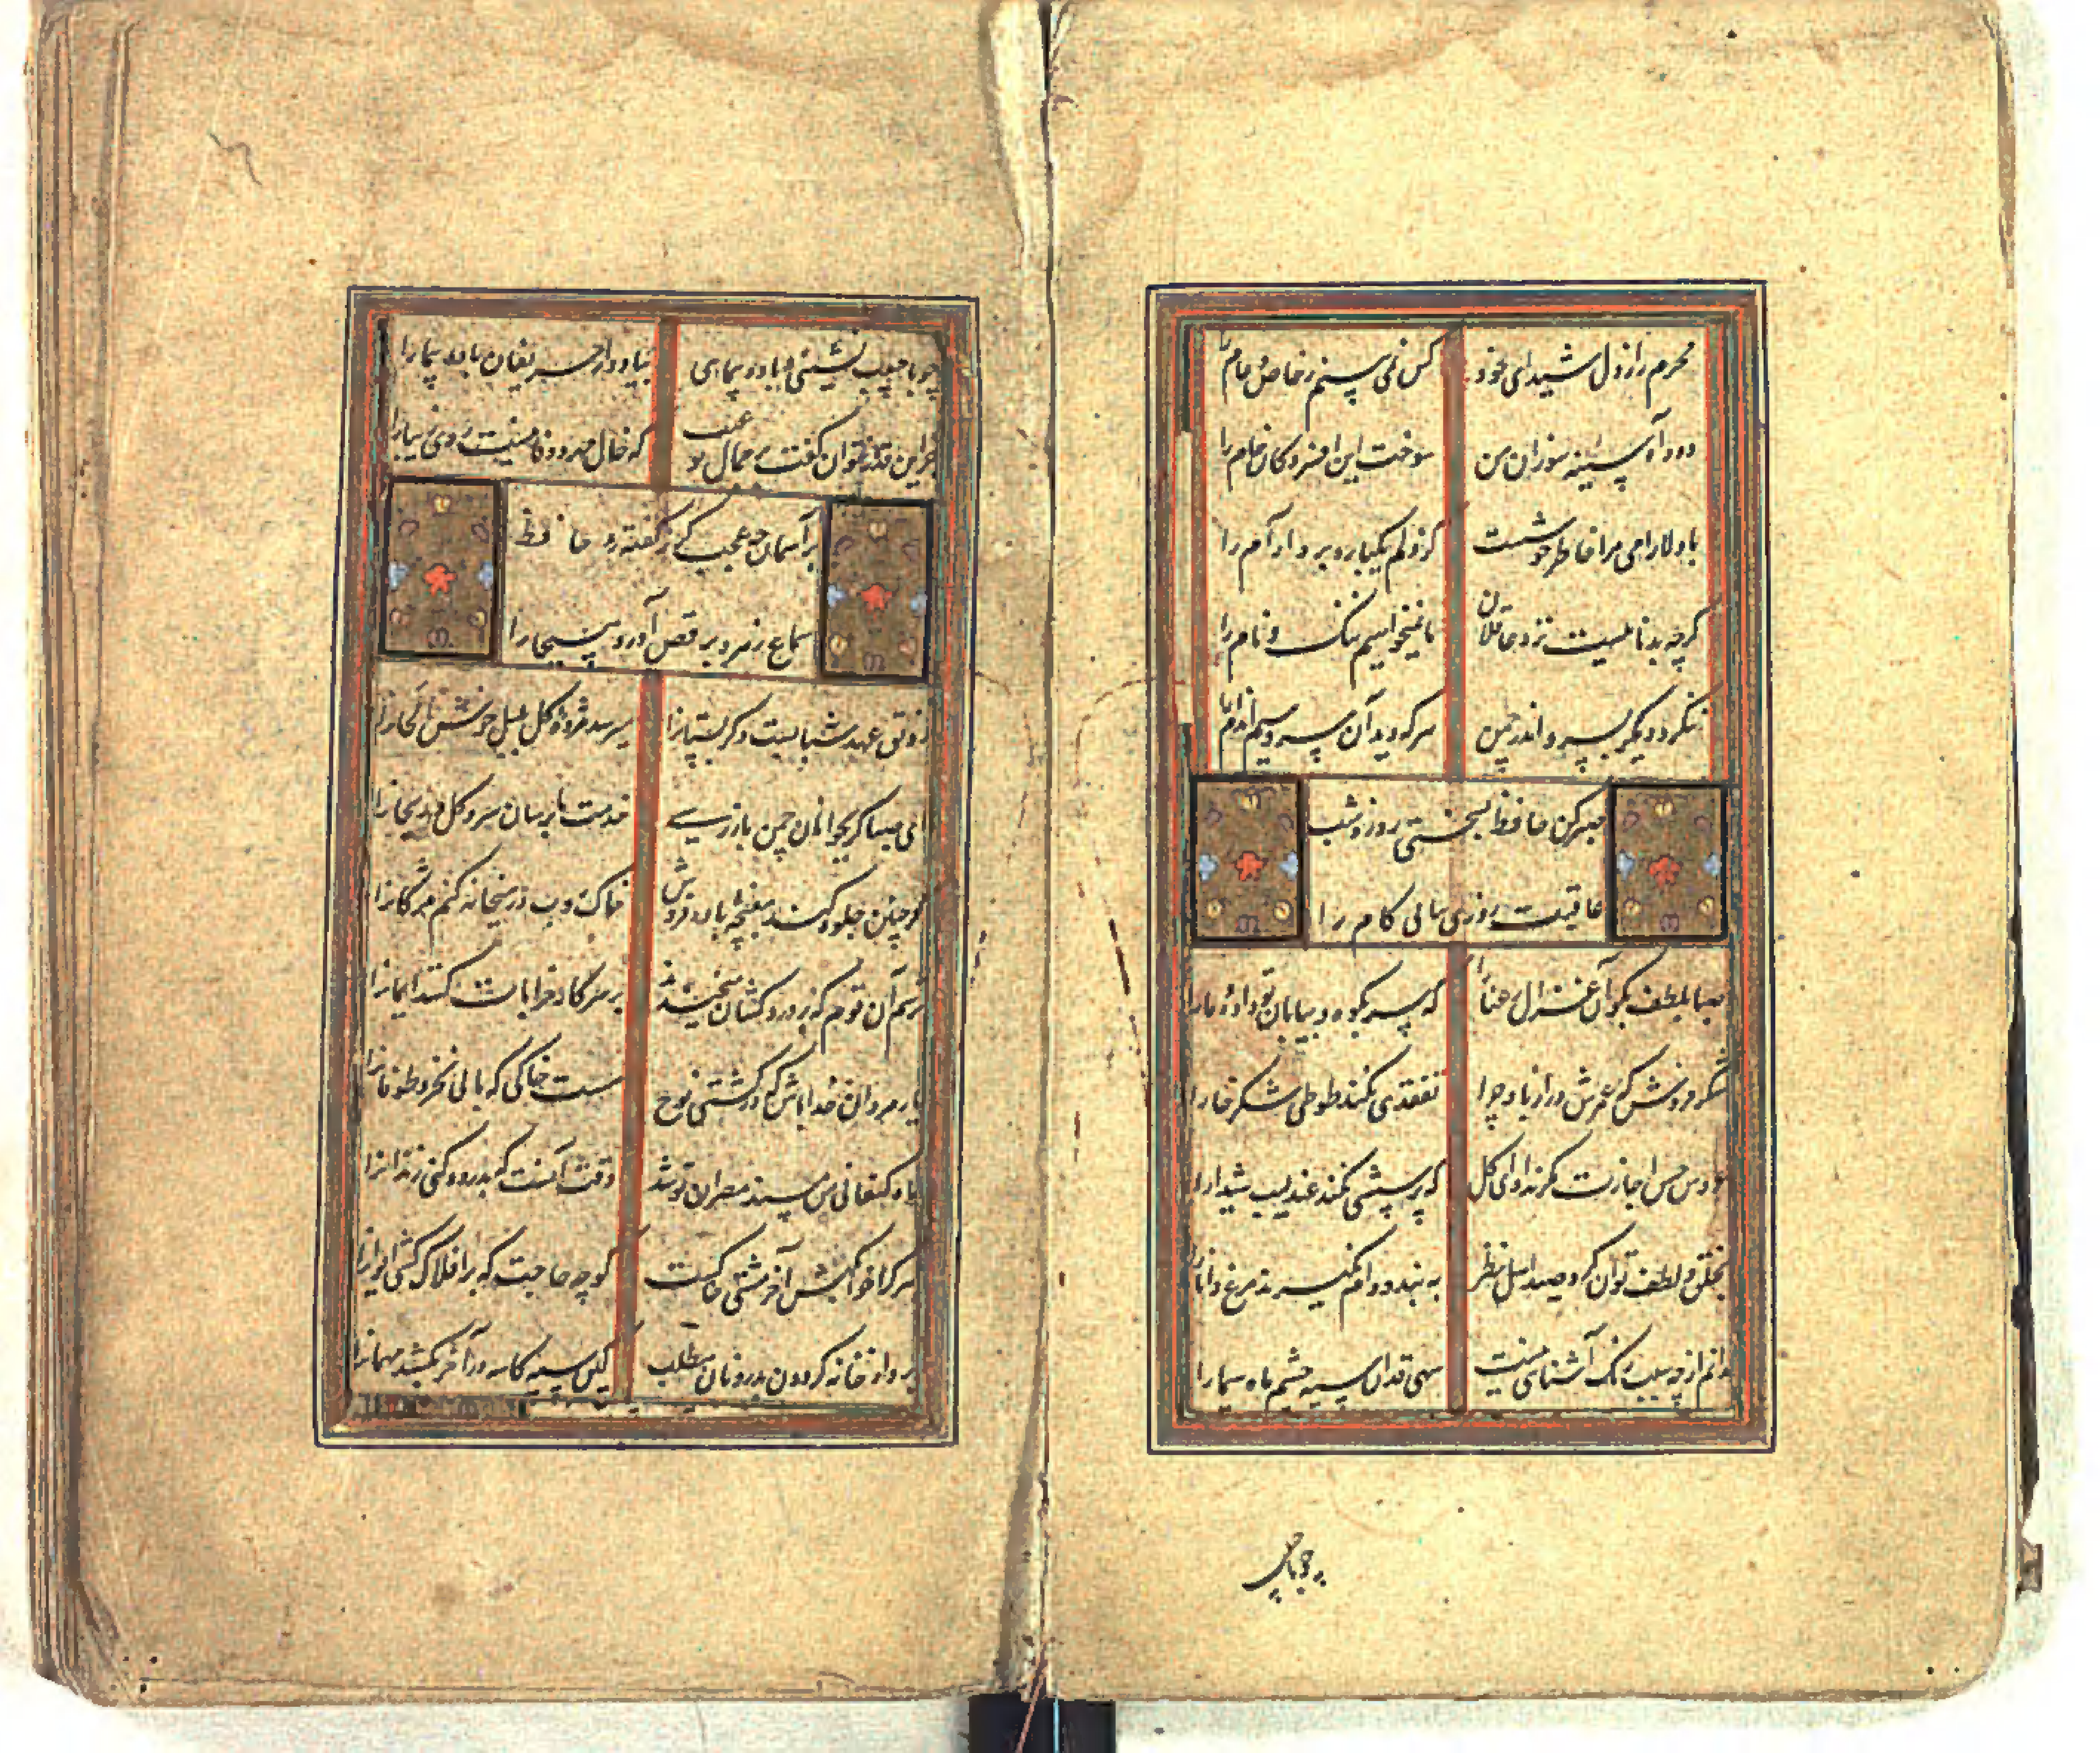 محرم راز دل شیدای خود کس نمی بینم ز خاص و عام را
دود آه سینه سوزان من سوخت این افسردکان خام را
با دلارامی مرا خاطر خوشست کز دلم یکباره برد آرام را
کرچه بدنامیست نزد عاقلان ما نمیخواهیم ننک و نام را
ننکرد دیکر بسرو اندر چمن هر که دید آن سرو سیم اندام را
صبر کن حافظ بسختی روز و شب
عاقبت روزی بیابی کام را
صبا بلطف بکو آن غزال رعنا را که سر بکوه و بیابان تو داده ما را
شکر فروش که عمرش دراز باد چرا تفقدی نکند طوطی شکرخا را
حسن اجازت مکر نداد ای کل که پرسشی نکند عندلیب شیدا را
بخلق و لطف توان کرد صید اهل نظر به بند و دام نکیرند مرغ دانا را
ندانم از چه سبب رنک آشنایی نیست سهی قدان سیه چشم ماه سیما را
چو با حبیب
چو با حبیب نشینی و باده پیمایی بیاد دار حریفان باده پیما را
جز این قدر نتوان کفت بر جمال تو عیب که خال مهر و وفا نیست روی زیبا را
بر آسمان چه عجب کر ز کفته حافظ
سماع زهره برقص آورد مسیحا را
رونق عهد شبابست دکر بستانرا میرسد مژده کل بلبل خوش الحانرا
ای صبا کر بجوانان چمن باز رسی خدمت ما برسان سرو و کل و ریحانرا
کر چنین جلوه کند مغبچه باده فروش خاکروب در میخانه کنم مژکانرا
ترسم آن قوم که بر دردکشان میخندند بر سر کار خرابات کنند ایمانرا
یار مردان خدا باش که در کشتی نوح هست خاکی که بآبی نخرد طوفانرا
ماه کنعانی من مسند مصر آن تو شد وقت آنست که بدرود کنی زندانرا
هر کرا خوابکه آخر مشتی خاکست کو چه حاجت که بر افلاک کشی ایوانرا
برو از خانه کردون بدر و نان مطلب کین سیه کاسه در آخر بکشد مهمانرا